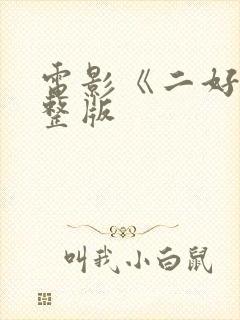 电影《二好
整版
叫我小白鼠